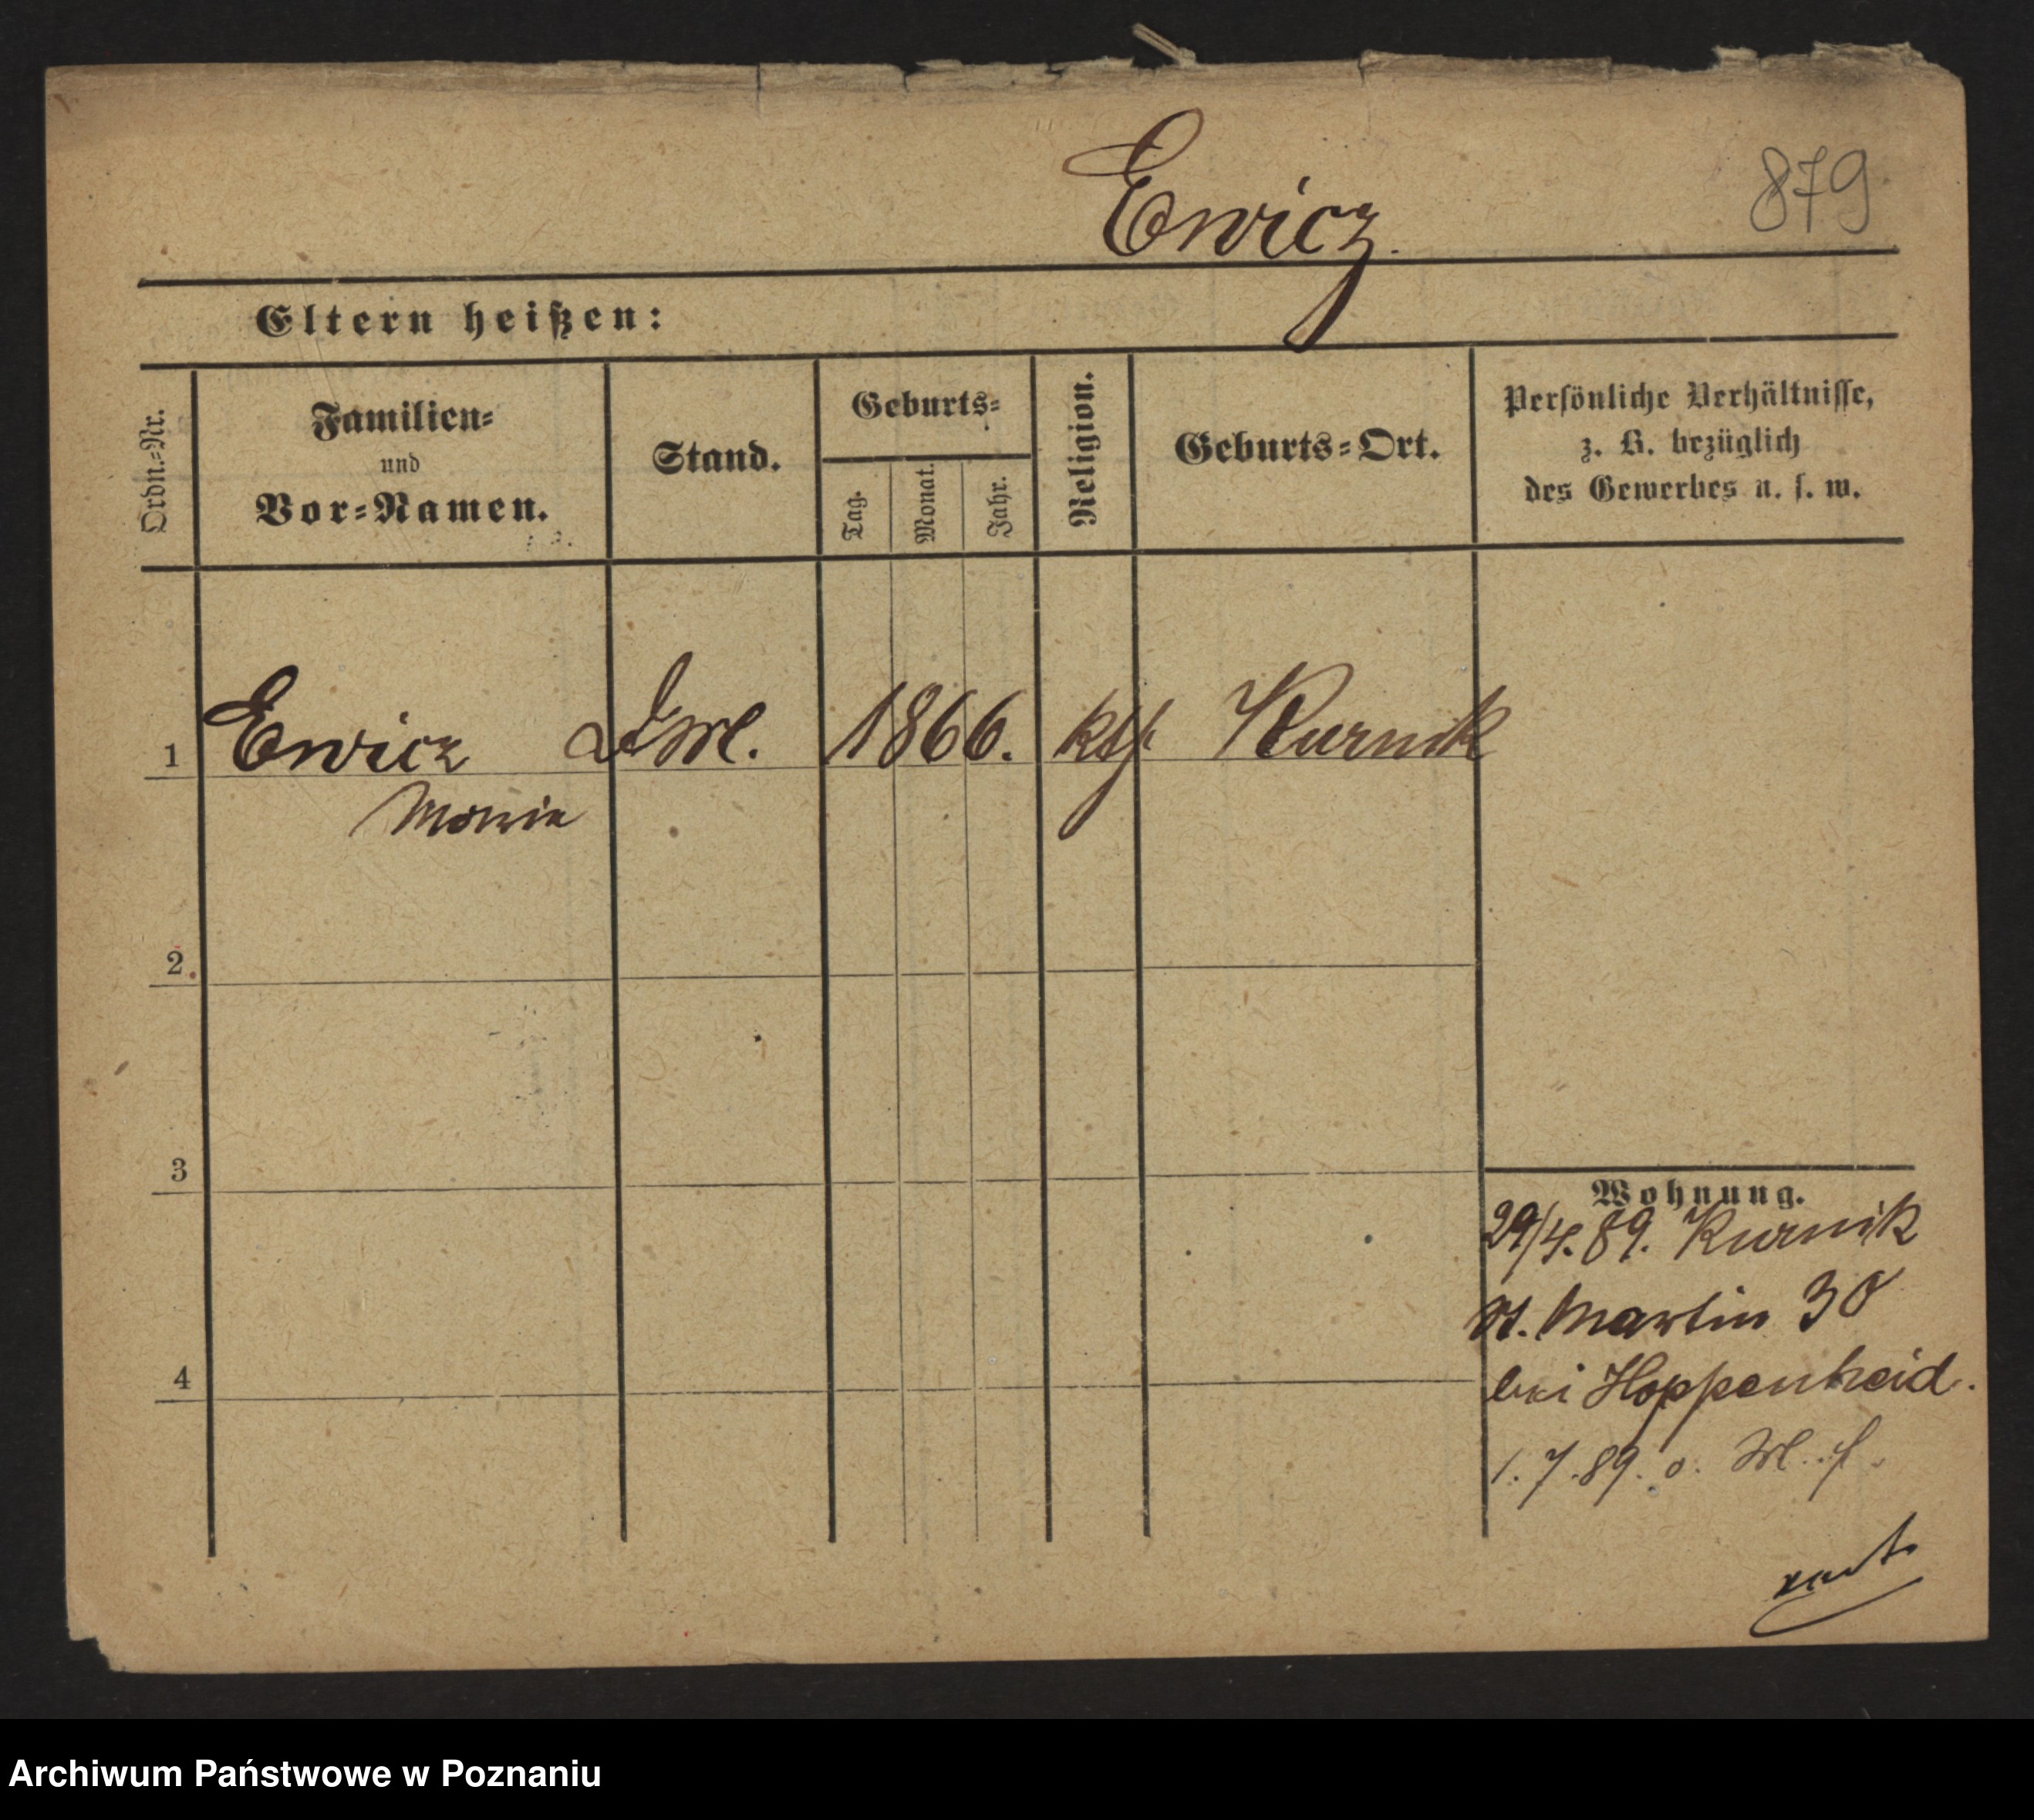 Ewicz.
879
Eltern heißen:
Ordn.-Nr.
Familien-
und
Vor-Namen.
Stand.
Geburts-
Tag.
Monat.
Jahr.
Religion.
Geburts-Ort.
Persönliche Verhältnisse,
z. B. bezüglich
des Gewerbes u. s. w.
1 Ewicz 1866. kth Kurnik
Maria
2
3
4
Wohnung.
29/4.89. Kurnik
St. Martin 30
bei Hoppenheid.
1.7.89. o.
Archiwum Państwowe w Poznaniu